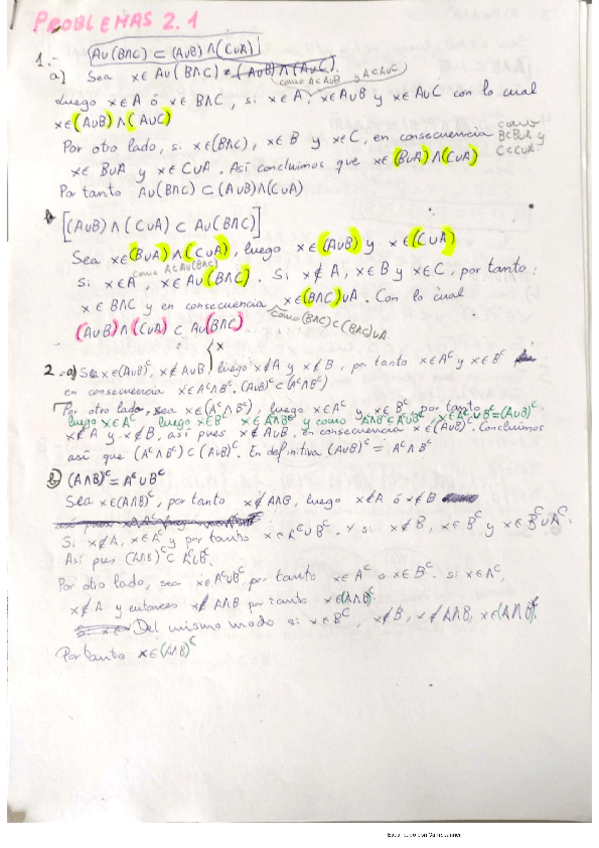 PROBLEMAS 2.1
1.- A∪(B∧C) ⊂ (A∪B)∧(C∪A)
a) Sea x∈A∪(B∧C)
como A⊂A∪B y A⊂A∪C
Luego x∈A ó x∈B∧C, si x∈A, x∈A∪B y x∈A∪C con lo cual
x∈(A∪B)∧(A∪C)
Por otro lado, si x∈(B∧C), x∈B y x∈C, en consecuencia como B⊂B∪A y C⊂C∪A
x∈B∪A y x∈C∪A. Así concluimos que x∈(B∪A)∧(C∪A)
Por tanto A∪(B∧C)⊂(A∪B)∧(C∪A)
b [(A∪B)∧(C∪A) ⊂ A∪(B∧C)]
Sea x∈(B∪A)∧(C∪A), luego x∈(A∪B) y x∈(C∪A)
como A⊂A∪(B∧C)
Si x∈A, x∈A∪(B∧C). Si x∉A, x∈B y x∈C, por tanto:
x∈B∧C y en consecuencia x∈(B∧C)∪A. Con lo cual
como (B∧C)⊂(B∧C)∪A
(A∪B)∧(C∪A) ⊂ A∪(B∧C)
2.-a) Sea x∈(A∪B)ᶜ, x∉A∪B luego x∉A y x∉B, por tanto x∈Aᶜ y x∈Bᶜ
en consecuencia x∈Aᶜ∧Bᶜ. (A∪B)ᶜ⊂(Aᶜ∧Bᶜ)
Por otro lado, sea x∈(Aᶜ∧Bᶜ), luego x∈Aᶜ y x∈Bᶜ, por tanto
luego x∈Aᶜ luego x∈Bᶜ x∈A∧Bᶜ y como
x∉A y x∉B, así pues x∉A∪B, en consecuencia x∈(A∪B)ᶜ. Concluimos
así que (Aᶜ∧Bᶜ)⊂(A∪B)ᶜ. En definitiva (A∪B)ᶜ = Aᶜ∧Bᶜ
b) (A∧B)ᶜ=Aᶜ∪Bᶜ
Sea x∈(A∧B)ᶜ, por tanto x∉A∧B, luego x∉A ó x∉B
Si x∉A, x∈Aᶜ y por tanto x∈Aᶜ∪Bᶜ. Y si x∉B, x∈Bᶜ y x∈Bᶜ∪Aᶜ.
Así pues (A∧B)ᶜ⊂Aᶜ∪Bᶜ.
Por otro lado, sea x∈Aᶜ∪Bᶜ, por tanto x∈Aᶜ o x∈Bᶜ. si x∈Aᶜ,
x∉A y entonces x∉A∧B por tanto x∈(A∧B)ᶜ.
Del mismo modo si x∈Bᶜ, x∉B, x∉A∧B, x∈(A∧B)ᶜ.
Por tanto x∈(A∧B)ᶜ